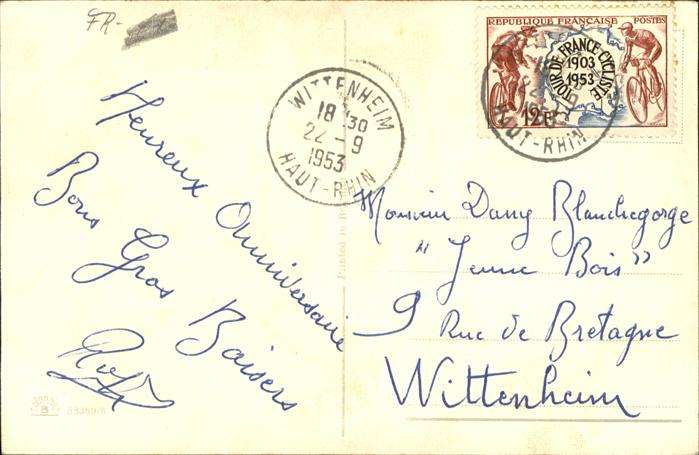 FR-
Heureux Anniversaire
Bons Gros Baisers
WITTENHEIM
18 30
22 - 9
1953
HAUT-RHIN
REPUBLIQUE FRANÇAISE POSTES
TOUR DE FRANCE CYCLISTE
1903
1953
12F
HAUT-RHIN
Monsieur Dany Blanchegorge
"Jeune Bois"
9 Rue de Bretagne
Wittenheim
Printed in